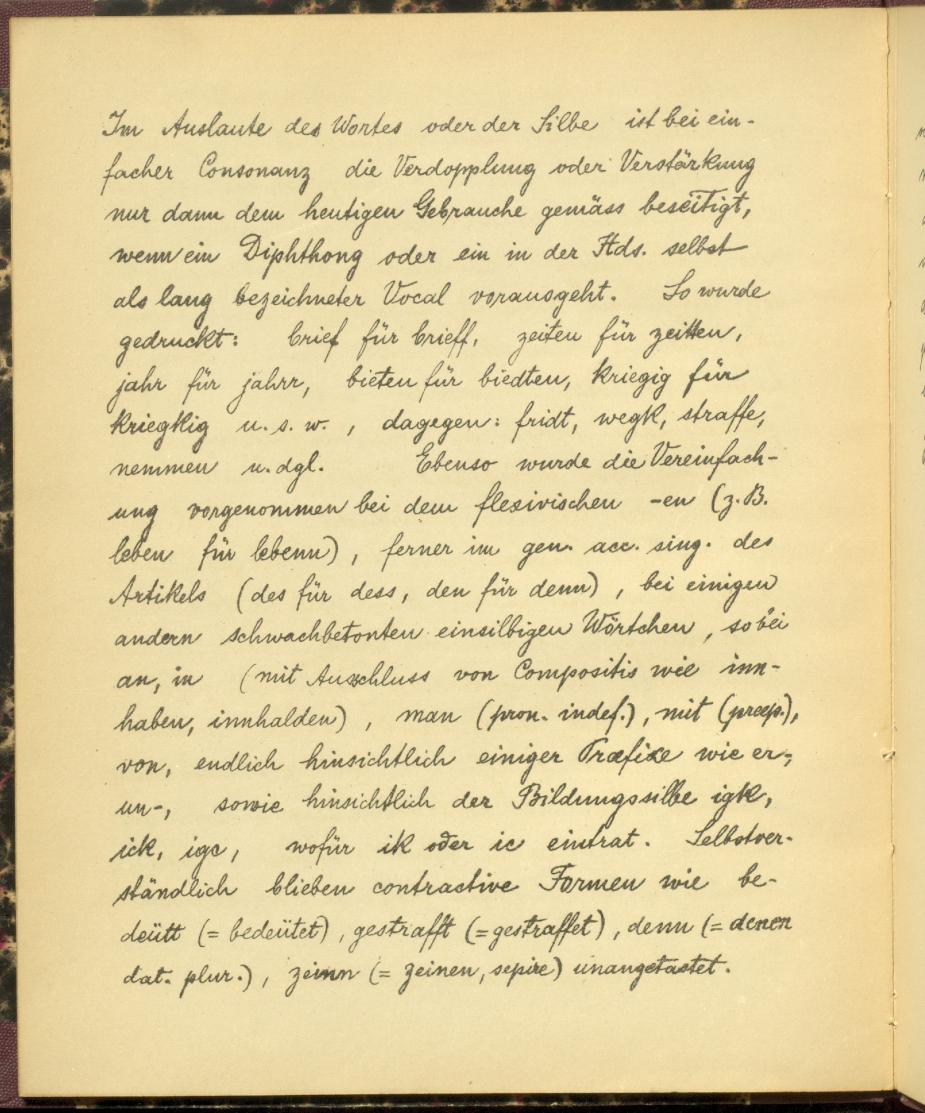 Im Auslaute des Wortes oder der Silbe ist bei ein-
facher Consonanz die Verdopplung oder Verstärkung
nur dann dem heutigen Gebrauche gemäss beseitigt,
wenn ein Diphthong oder ein in der Hds. selbst
als lang bezeichneter Vocal vorausgeht. So wurde
gedruckt: brief für brieff, zeiten für zeitten,
jahr für jahrr, bieten für biedten, kriegig für
kriegkig u. s. w., dagegen: fridt, wegk, straffe,
nemmen u. dgl. Ebenso wurde die Vereinfach-
ung vorgenommen bei dem flexivischen -en (z. B.
leben für lebenn), ferner im gen. acc. sing. des
Artikels (des für dess, den für denn), bei einigen
andern schwachbetonten einsilbigen Wörtchen, so bei
an, in (mit Auschluss von Compositis wie inn-
haben, innhalden), man (pron. indef.), mit (præp.),
von, endlich hinsichtlich einiger Præfixe wie er-,
un-, sowie hinsichtlich der Bildungssilbe igk,
ick, igc, wofür ik oder ic eintrat. Selbstver-
ständlich blieben contractive Formen wie be-
deütt (= bedeütet), gestrafft (= gestraffet), denn (= denen
dat. plur.), zeinn (= zeinen, sepire) unangetastet.